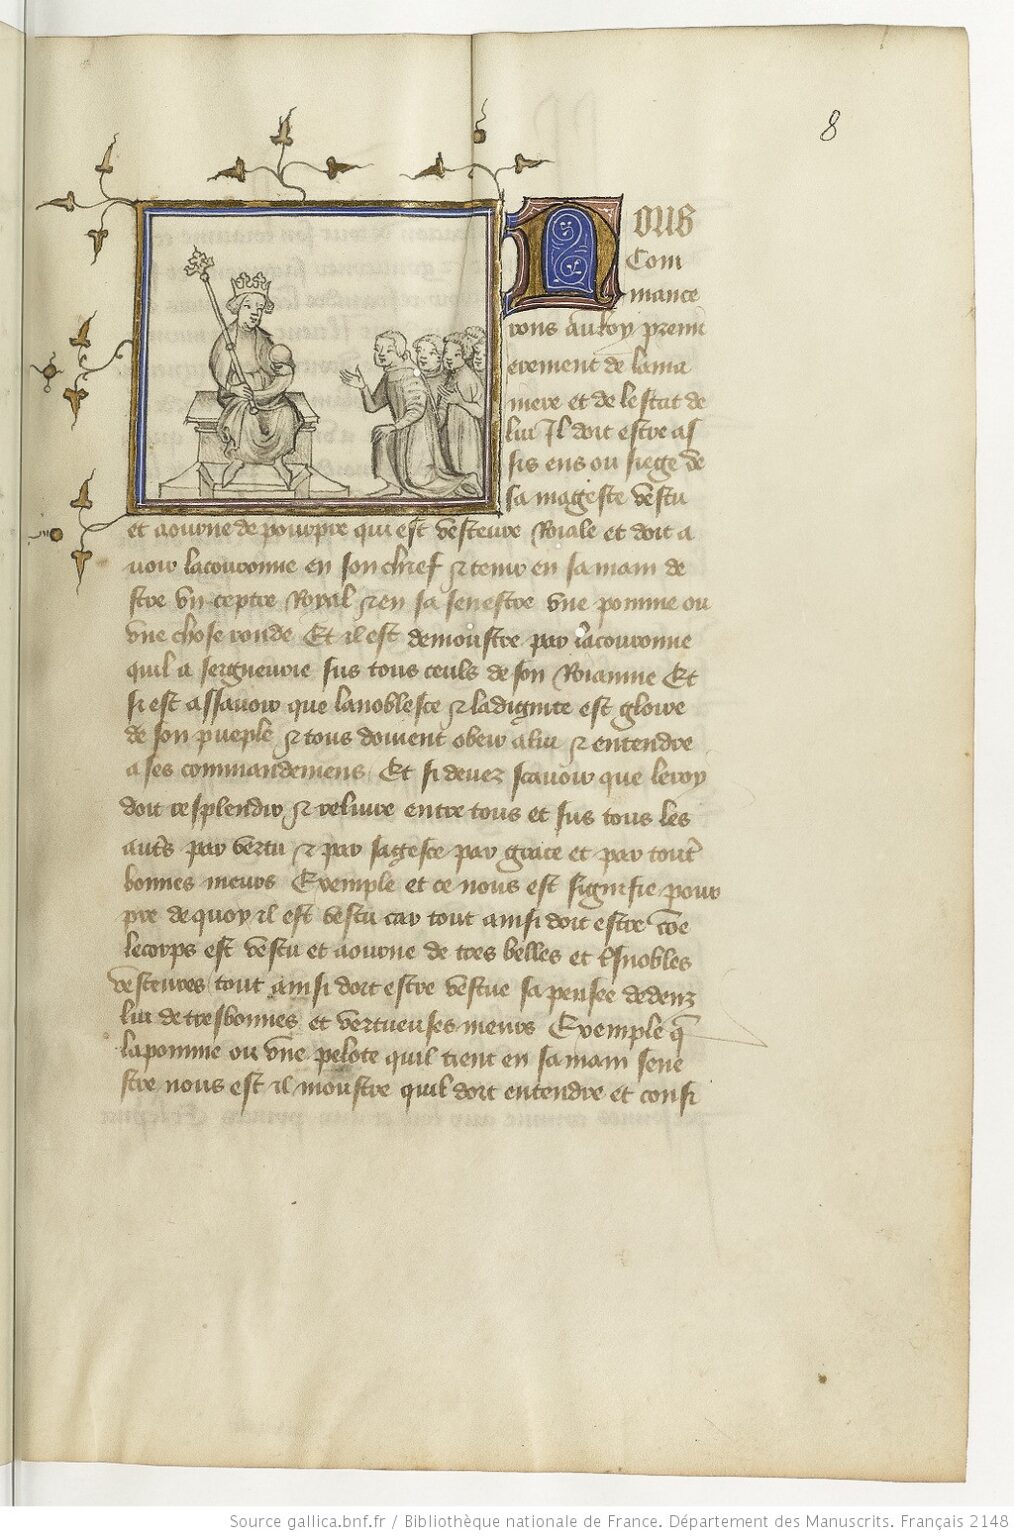 8
NOUS
Com
mance
rons au Roy premi
erement de lama
niere et de lestat de
lui Il doit estre as
sis ens ou siege de
sa mageste vestu
et aourne de pourpre qui est vesteure Roiale et doit a
uoir lacouronne en son chief et tenir en sa main de
stre vn ceptre Royal et en sa senestre vne pomme ou
vne chose ronde Et il est demoustre par lacouronne
quil a seigneurie sus tous ceulx de son Roiaume Et
si est assauoir que lanoblesce et ladignite est gloire
de son pueple et tous doiuent obeir alui et entendre
a ses commandemens Et si deuez scauoir que leroy
doit resplendir et reluire entre tous et sus tous les
autrs par vertu et par sagesce par grace et par tout
bonnes meurs Exemple et ce nous est signifie pour
pre de quoy il est vestu car tout ainsi doit estre coe
lecorps est vestu et aourne de tres belles et nobles
vesteures tout ainsi doit estre vestue sa pensee dedenz
lui de tresbonnes et vertueuses meurs Exemple q
lapomme ou vne pelote quil tient en sa main sene
stre nous est il moustre quil doit entendre et consi
Source gallica.bnf.fr / Bibliothèque nationale de France. Département des Manuscrits. Français 2148